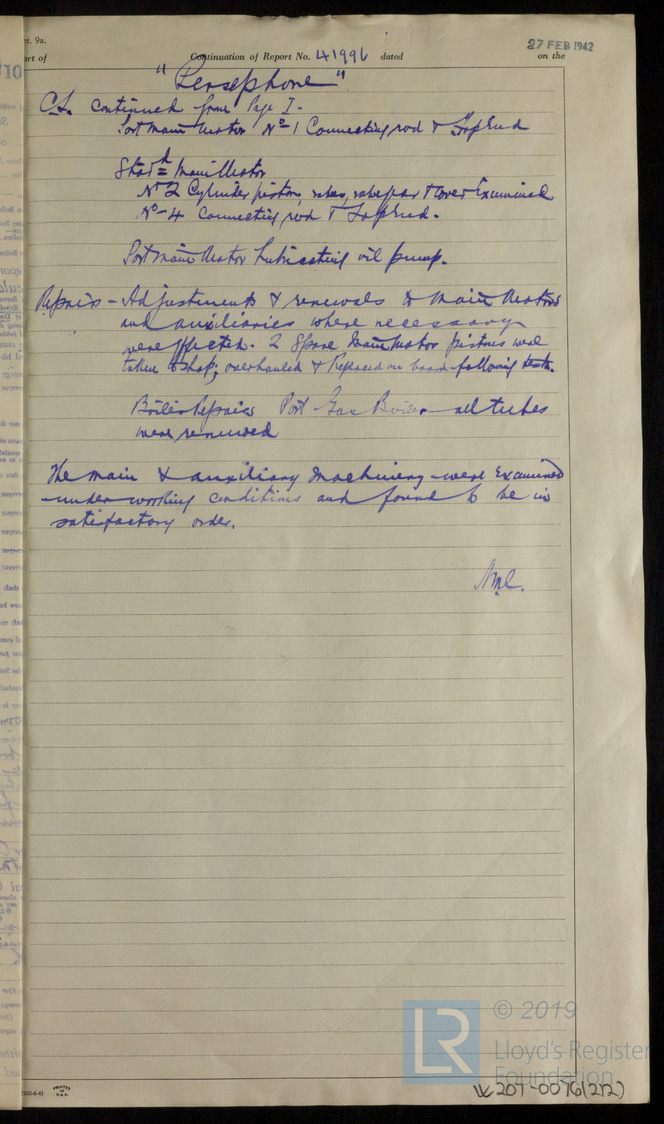 pt. 9a.
27 FEB 1942
ort of Continuation of Report No. 41996 dated on the
"Persephone"
C.S. continued from Page I-
Port Main Motor Nº 1 Connecting rod & Top End
Starbd Main Motor
Nº 2 Cylinder piston, valves, valve gear & cover Examined
Nº-4 Connecting rod & Top End.
Port Main Motor Lubricating oil pump.
Repairs - Adjustments & renewals to Main Motors
and auxiliaries where necessary
were effected. 2 Spare Main Motor pistons were
taken to shop; overhauled & Replaced on board following tests.
Boiler Repairs Port Gas Boiler - all tubes
were renewed
The main & auxiliary machinery were Examined
under working conditions and found to be in
satisfactory order.
PRINTED IN U.S.A.
© 2019
LR
Lloyd's Register
Foundation
W207-0076(2/2)